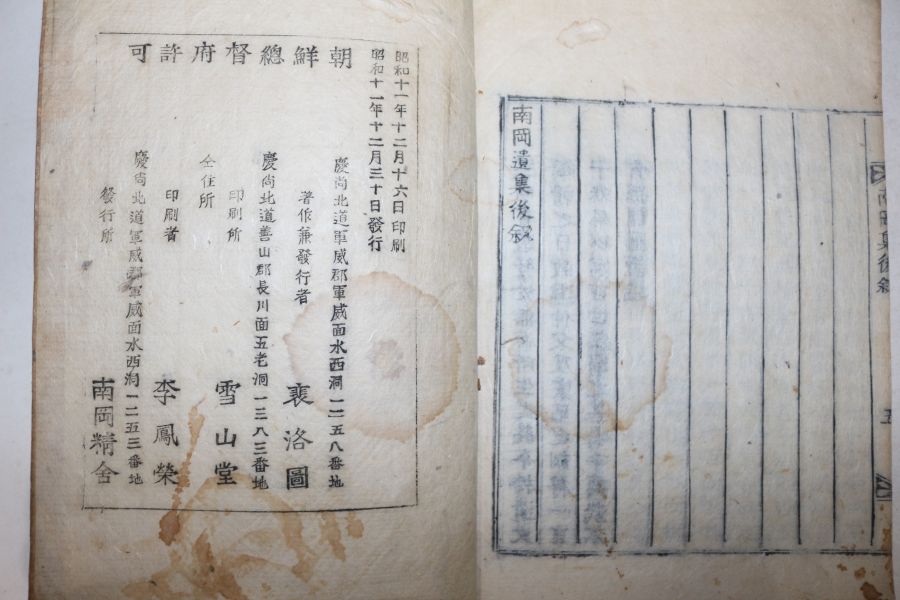 南岡集後叙
五
南岡遺集後叙
朝鮮總督府許可
昭和十一年十二月十六日印刷
昭和十一年十二月三十日發行
慶尚北道軍威郡軍威面水西洞一二五八番地
著作兼發行者 裵洛圖
慶尚北道善山郡長川面五老洞一三八三番地
印刷所 雪山堂
仝住所
印刷者 李鳳榮
慶尚北道軍威郡軍威面水西洞一二五三番地
發行所 南岡精舍